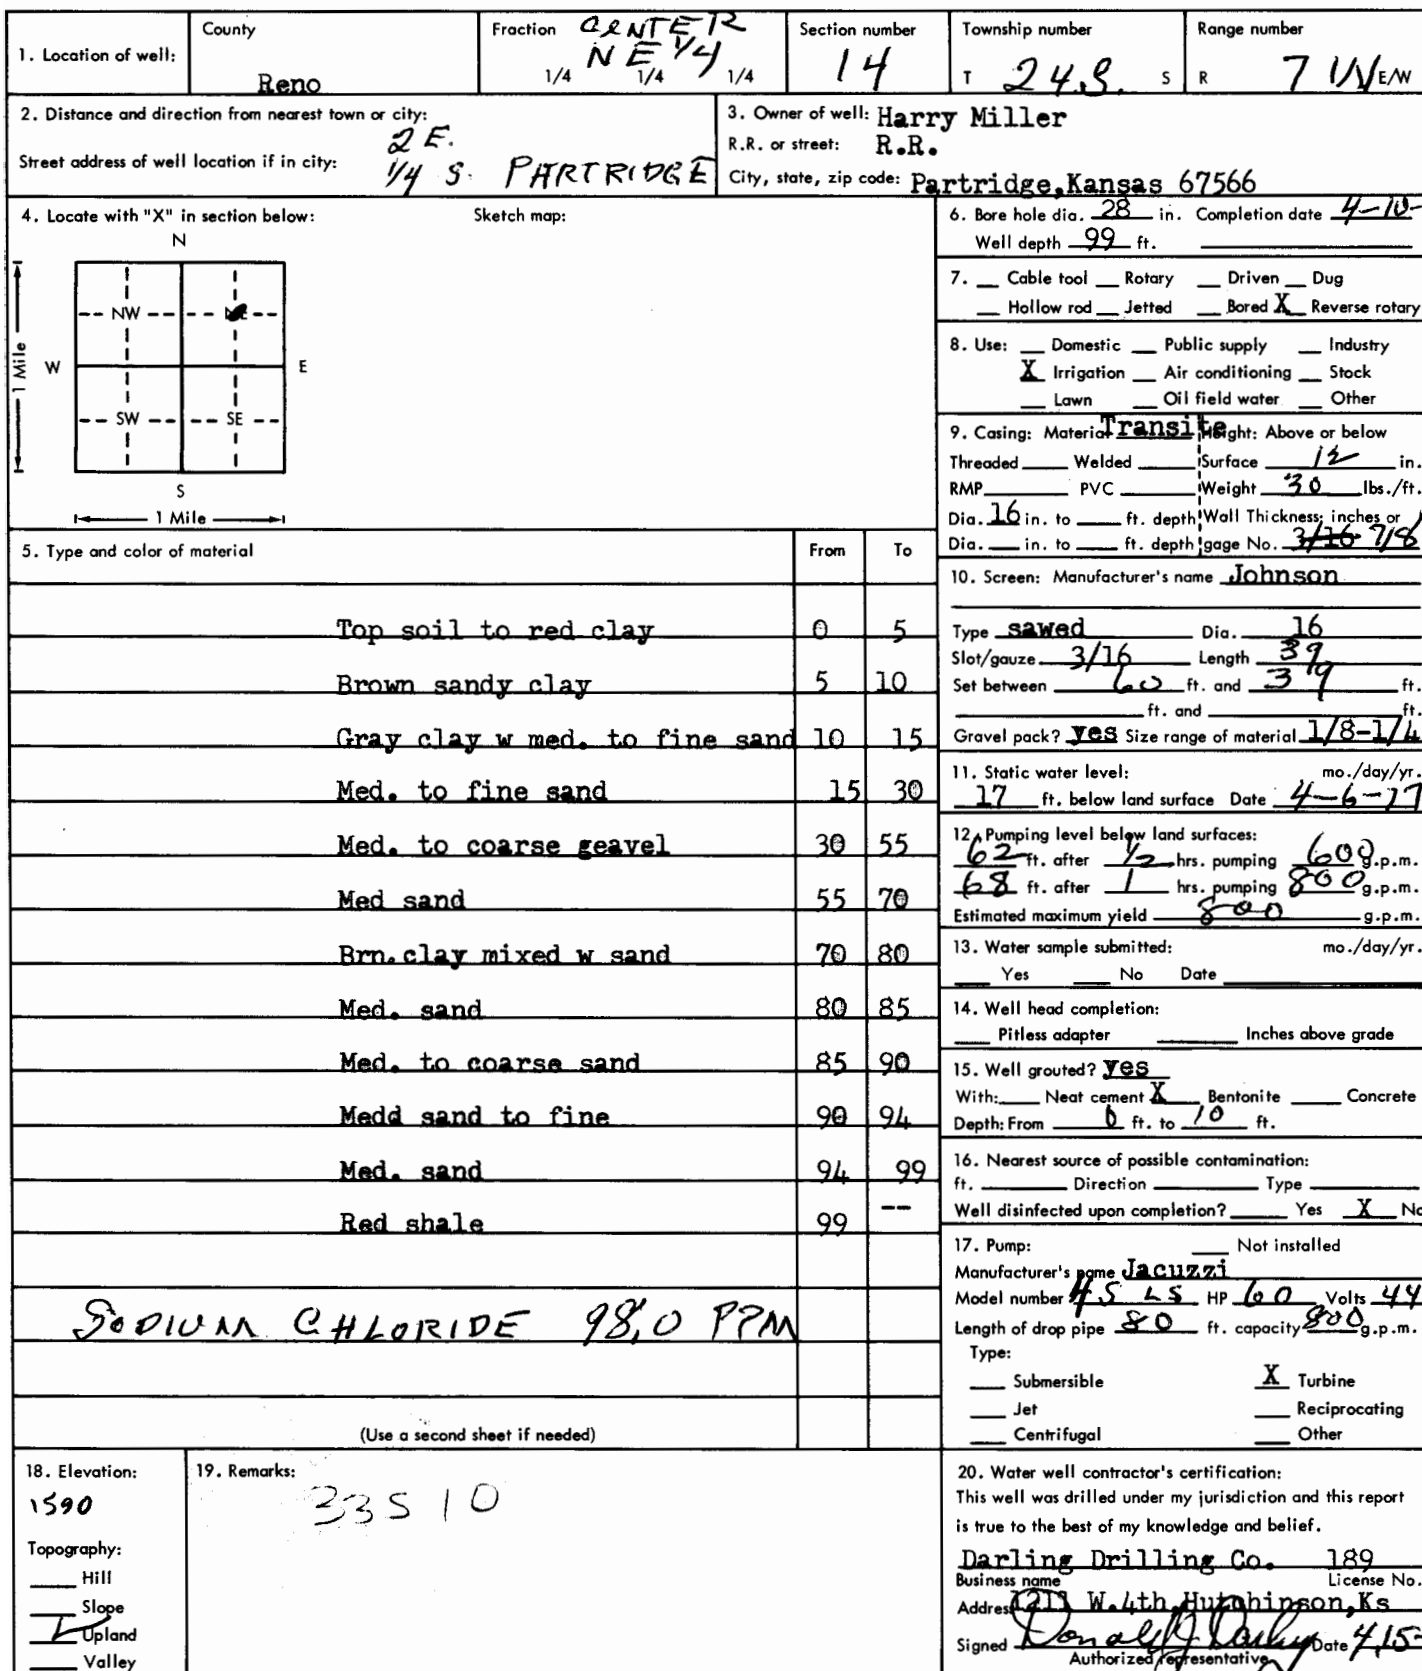 1. Location of well:
County
Reno
Fraction CENTER
NE 1/4
1/4 1/4 1/4
Section number
14
Township number
T 24S. S
Range number
R 7 W E/W
2. Distance and direction from nearest town or city:
2 E.
Street address of well location if in city:
1/4 S. PARTRIDGE
3. Owner of well: Harry Miller
R.R. or street: R.R.
City, state, zip code: Partridge,Kansas 67566
4. Locate with "X" in section below:
Sketch map:
N
NW
W E
1 Mile
SW SE
S
1 Mile
5. Type and color of material From To
Top soil to red clay 0 5
Brown sandy clay 5 10
Gray clay w med. to fine sand 10 15
Med. to fine sand 15 30
Med. to coarse geavel 30 55
Med sand 55 70
Brn.clay mixed w sand 70 80
Med. sand 80 85
Med. to coarse sand 85 90
Medd sand to fine 90 94
Med. sand 94 99
Red shale 99 --
SODIUM CHLORIDE 98.0 PPM
(Use a second sheet if needed)
6. Bore hole dia. 28 in. Completion date 4-10-
Well depth 99 ft.
7. Cable tool Rotary Driven Dug
Hollow rod Jetted Bored X Reverse rotary
8. Use: Domestic Public supply Industry
X Irrigation Air conditioning Stock
Lawn Oil field water Other
9. Casing: Material Transite Height: Above or below
Threaded Welded Surface 12 in.
RMP PVC Weight 30 lbs./ft.
Dia. 16 in. to ft. depth Wall Thickness: inches or
Dia. in. to ft. depth gage No. 3/16 7/8
10. Screen: Manufacturer's name Johnson
Type sawed Dia. 16
Slot/gauze 3/16 Length 39
Set between 60 ft. and 39 ft.
ft. and ft.
Gravel pack? yes Size range of material 1/8-1/4
11. Static water level: mo./day/yr.
17 ft. below land surface Date 4-6-77
12. Pumping level below land surfaces:
62 ft. after 1/2 hrs. pumping 600 g.p.m.
68 ft. after 1 hrs. pumping 800 g.p.m.
Estimated maximum yield 800 g.p.m.
13. Water sample submitted: mo./day/yr.
Yes No Date
14. Well head completion:
Pitless adapter Inches above grade
15. Well grouted? yes
With: Neat cement X Bentonite Concrete
Depth: From 0 ft. to 10 ft.
16. Nearest source of possible contamination:
ft. Direction Type
Well disinfected upon completion? Yes X No
17. Pump: Not installed
Manufacturer's name Jacuzzi
Model number HP 60 Volts 44
Length of drop pipe 80 ft. capacity 800 g.p.m.
Type:
Submersible X Turbine
Jet Reciprocating
Centrifugal Other
18. Elevation:
1590
Topography:
Hill
Slope
Upland
Valley
19. Remarks:
33510
20. Water well contractor's certification:
This well was drilled under my jurisdiction and this report
is true to the best of my knowledge and belief.
Darling Drilling Co. 189
Business name License No.
Address 1211 W.4th,Hutchinson,Ks
Signed Donald J Darling Date 4,15-
Authorized representative